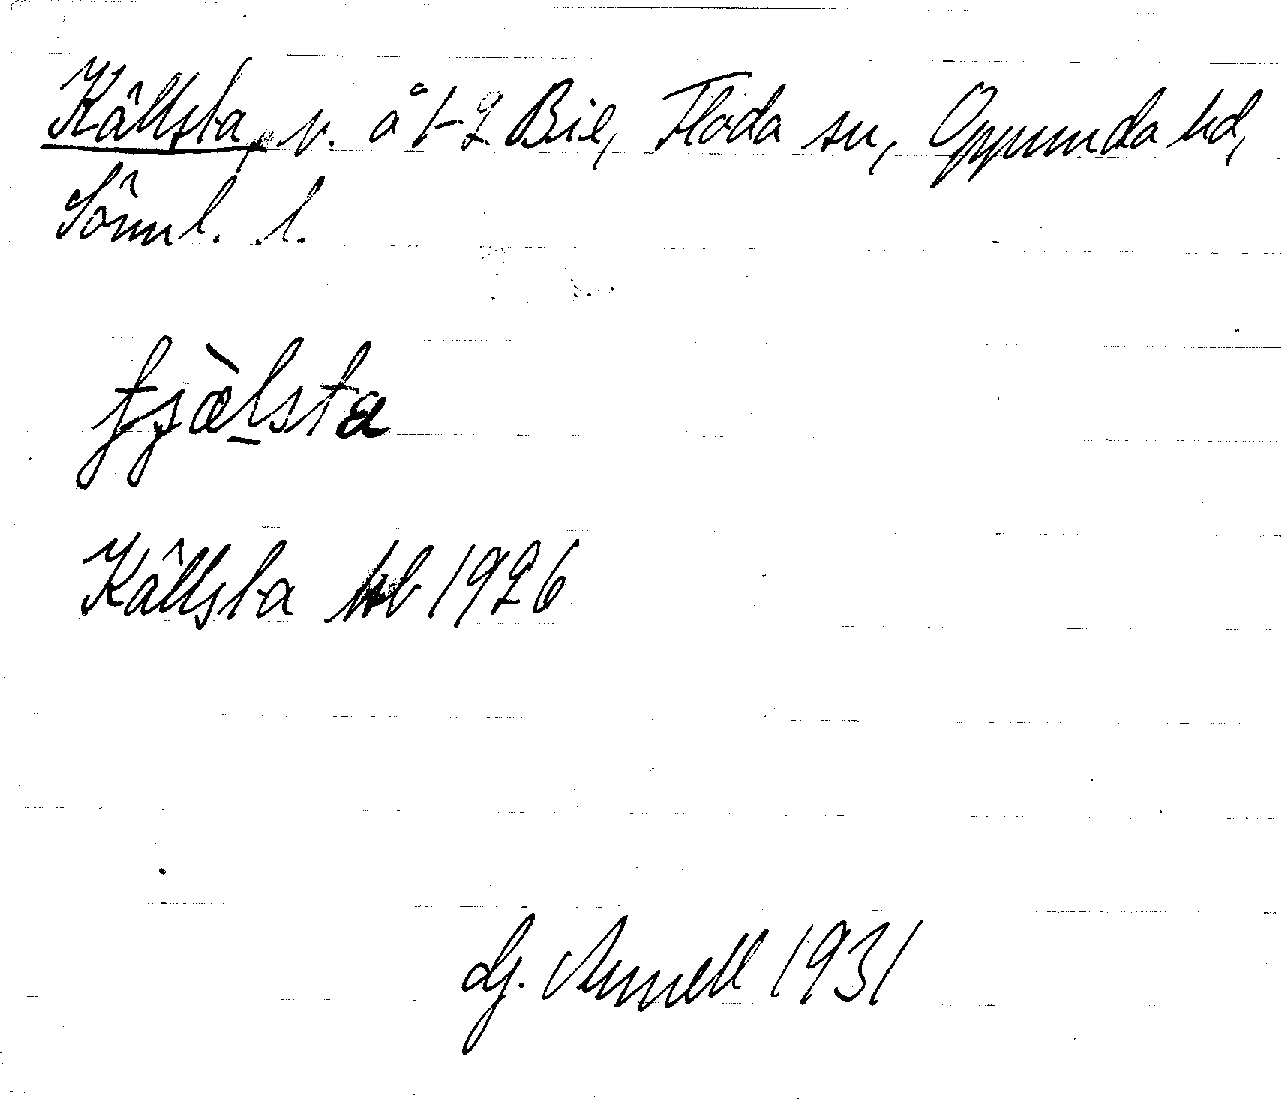 Källsta, v. å 1-2 Bie, Floda sn, Oppunda hd,
Sörml. l.
tjälsta
Källsta kb 1926
G. Arnell 1931